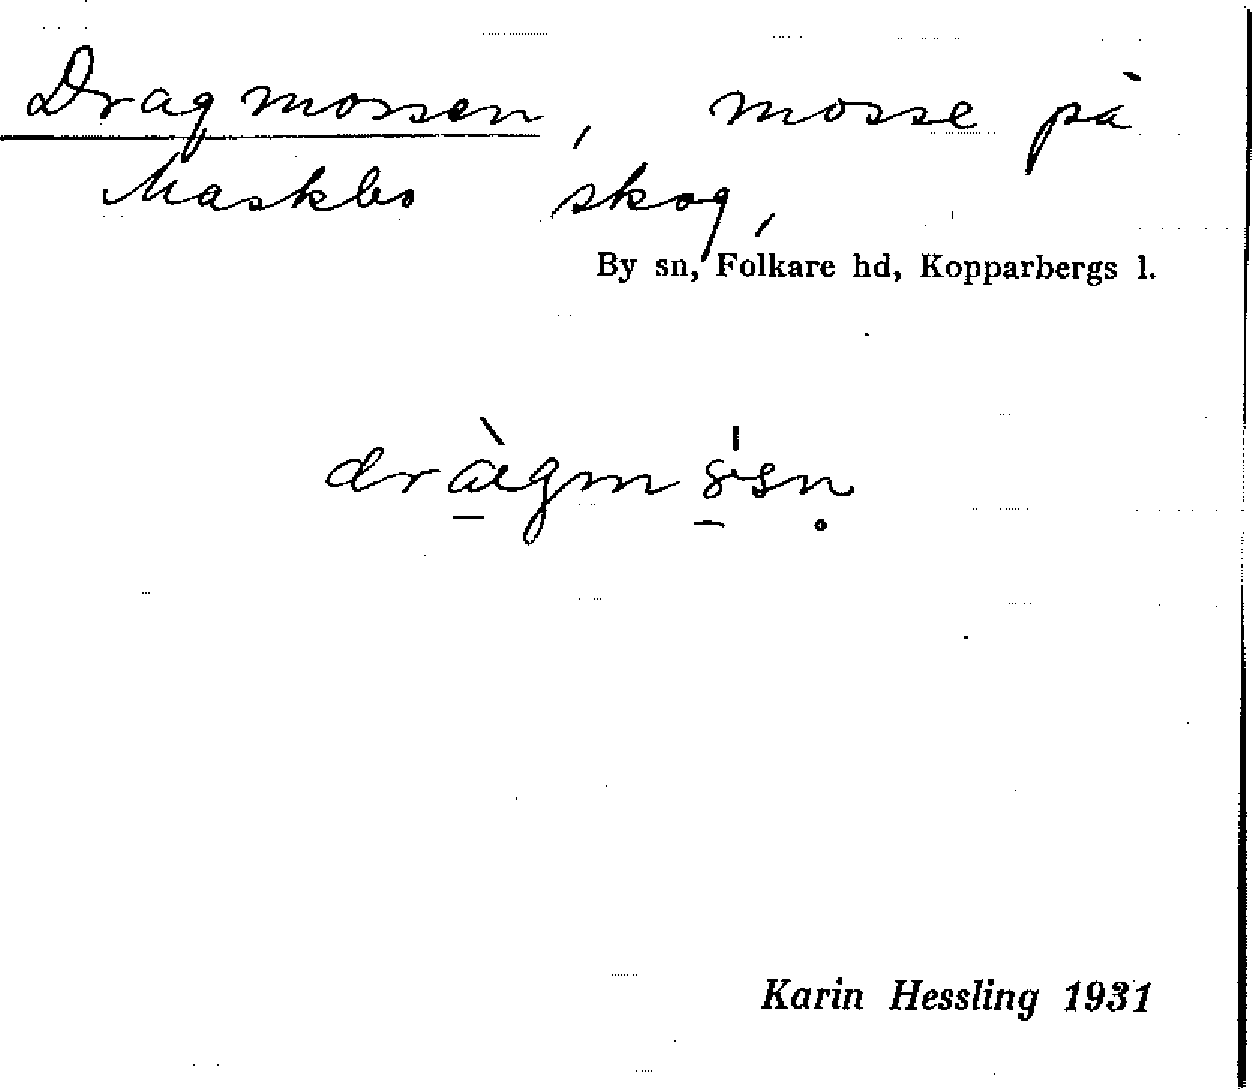 Dragmossen, mosse på
Maskbo skog,
By sn, Folkare hd, Kopparbergs l.
Karin Hessling 1931